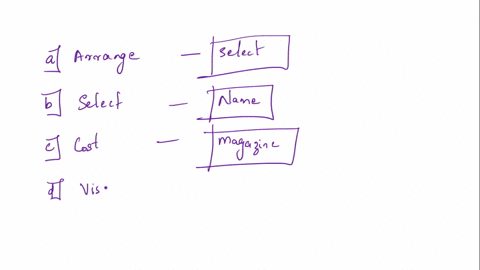 a] Arrange — Select
b] Select — Name
c] Cost — Magazine
d] Vis